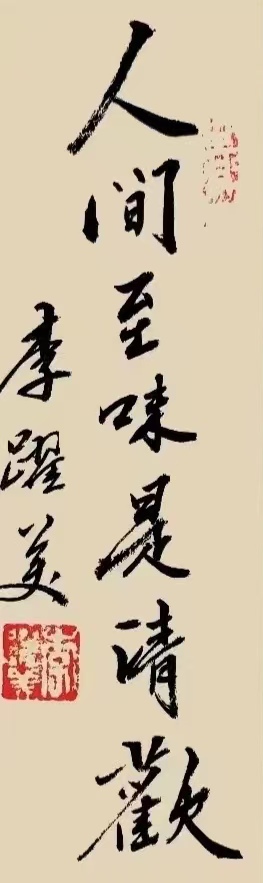 人间至味是清歡
李躍美